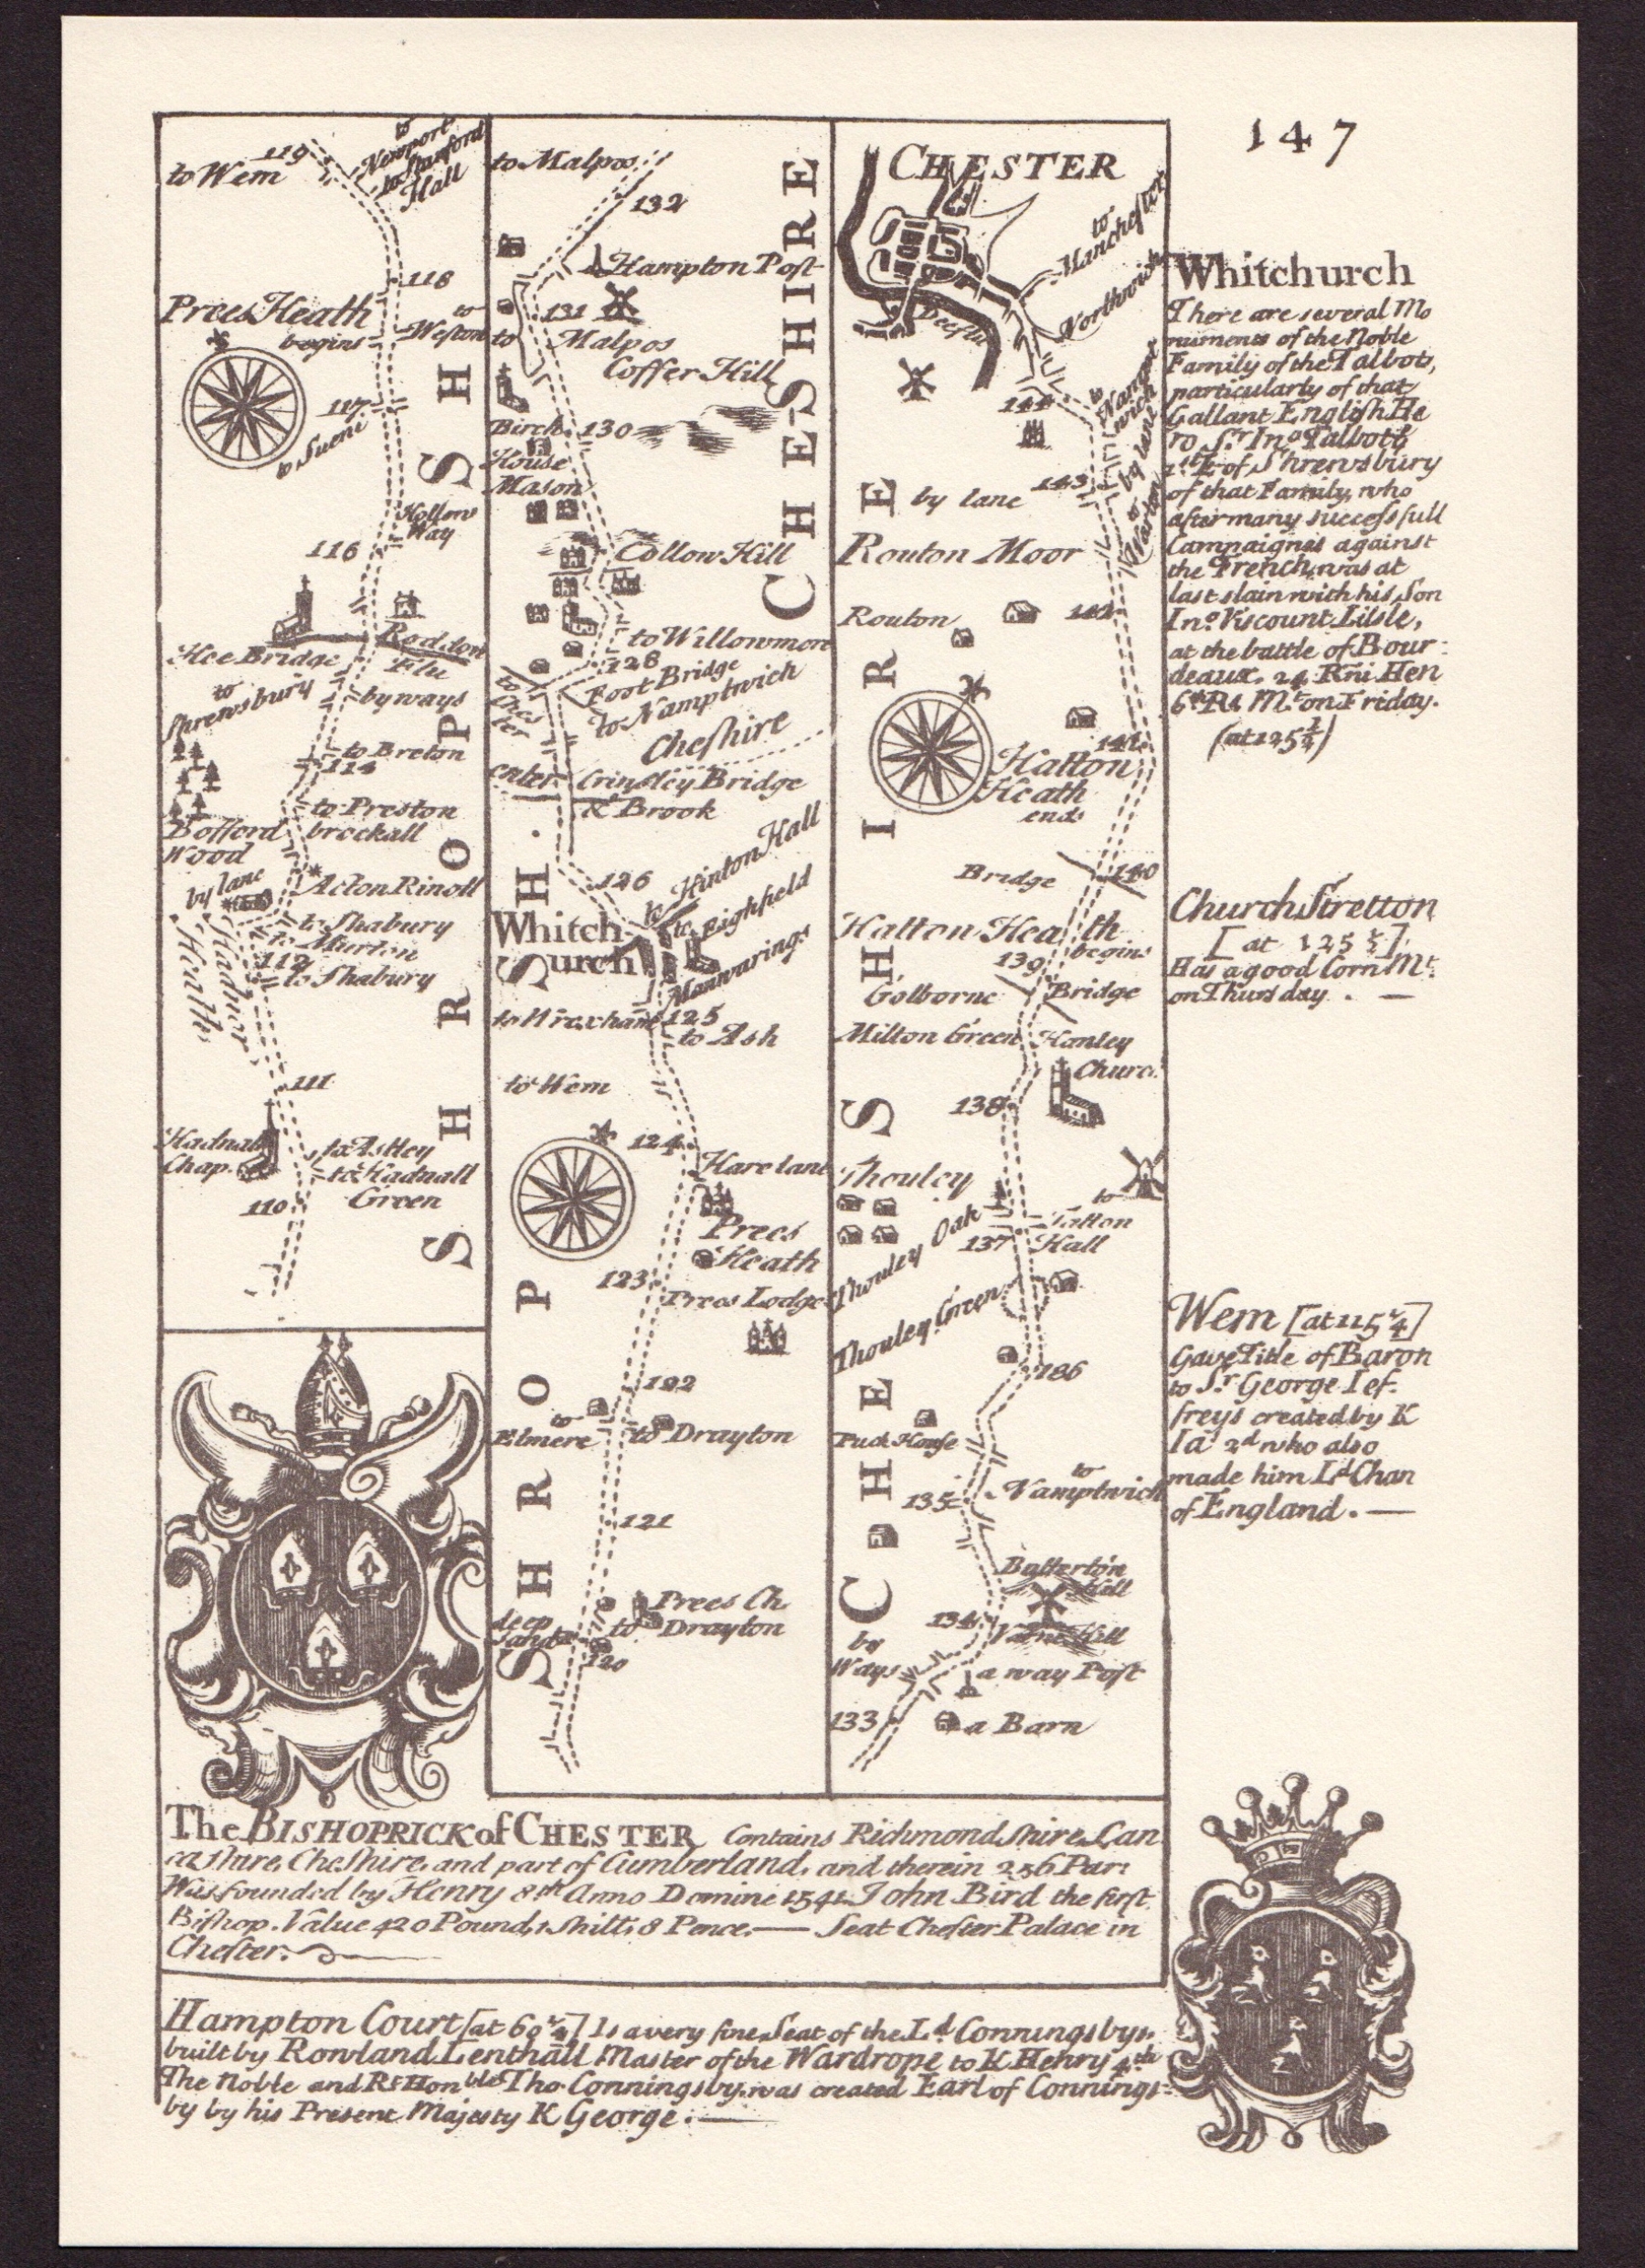 147
to Wem
119
to
Newport
to Stanford
Hall
118
Prees Heath
begins
to
Weston
117
to Suene
Hollow
Way
116
Hee Bridge
Roddon
Flu
to
Shrewsbury
by ways
to Breton
114
to Preston
brockall
Bofford
Wood
by lane
Acton Rinoll
to Shabury
to Murton
112
to Shabury
Hadnor
Heath
111
Hadnall
Chap.
to Astley
to Hadnall
Green
110
SHROPSH
to Malpos
132
Hampton Post
131
to
Malpos
Coffer Hill
Birch
House
130
Mason
Collow Hill
to Willowmore
128
Foot Bridge
to Namptwich
to
Ches
ter
Cheshire
enter
Crinsley Bridge
& Brook
126
to Hinton Hall
Whitch
urch
to Eighfield
Manwarings
to Wrexham
125
to Ash
to Wem
124
Hare lane
Prees
Heath
123
Prees Lodge
122
to
Elmere
to Drayton
121
Prees Ch.
deep
sand
to Drayton
120
SHROPSH.
CHESHIRE
CHESTER
to
Manchester
Northwich
Dee flu
144
to
Nampt
wich
by lane
143
by lane
to
Warton
Routon Moor
Routon
142
141
Hatton
Heath
ends
Bridge
140
Hatton Heath
begins
139
Golborne
Bridge
Milton Green
Hanley
Churc.
138
Thouley
Thouley Oak
to
Tatton
Hall
137
Thouley Green
136
Puck House
135
to
Namptwich
Batterton
Hall
134
by
Ways
a way Post
133
a Barn
CHESHIRE
Whitchurch
There are several Mo
numents of the Noble
Family of the Talbots,
particularly of that
Gallant English He
ro Sr. Ino. Talbott
1st E of Shrewsbury
of that Family, who
after many successfull
Campaignes against
the French, was at
last slain with his Son
Ino. Viscount Lisle,
at the battle of Bour:
deaux. 24 Rni Hen
6th Rs Mt. on Friday.
(at 125¼)
Church Stretton
[at 125½]
Has a good Corn Mt.
on Thursday. —
Wem [at 115¼]
Gave Title of Baron
to Sr. George Ief-
freys created by K
Ia 2d who also
made him Ld Chan
of England. —
The BISHOPRICK of CHESTER Contains Richmond shire, Lan
cashire, Cheshire, and part of Cumberland, and therein 256 Par:
Was founded by Henry 8th Anno Domine 1541 John Bird the first
Bishop. Value 420 Pound, 1 Shill, 8 Pence. — Seat Chester Palace in
Chester.
Hampton Court [at 60¼] Is a very fine Seat of the Ld. Conningsbys,
built by Rowland Lenthall Master of the Wardrope to K Henry 4th
The Noble and Rt Honble Tho. Conningsby, was created Earl of Connings-
by by his Present Majesty K George. —